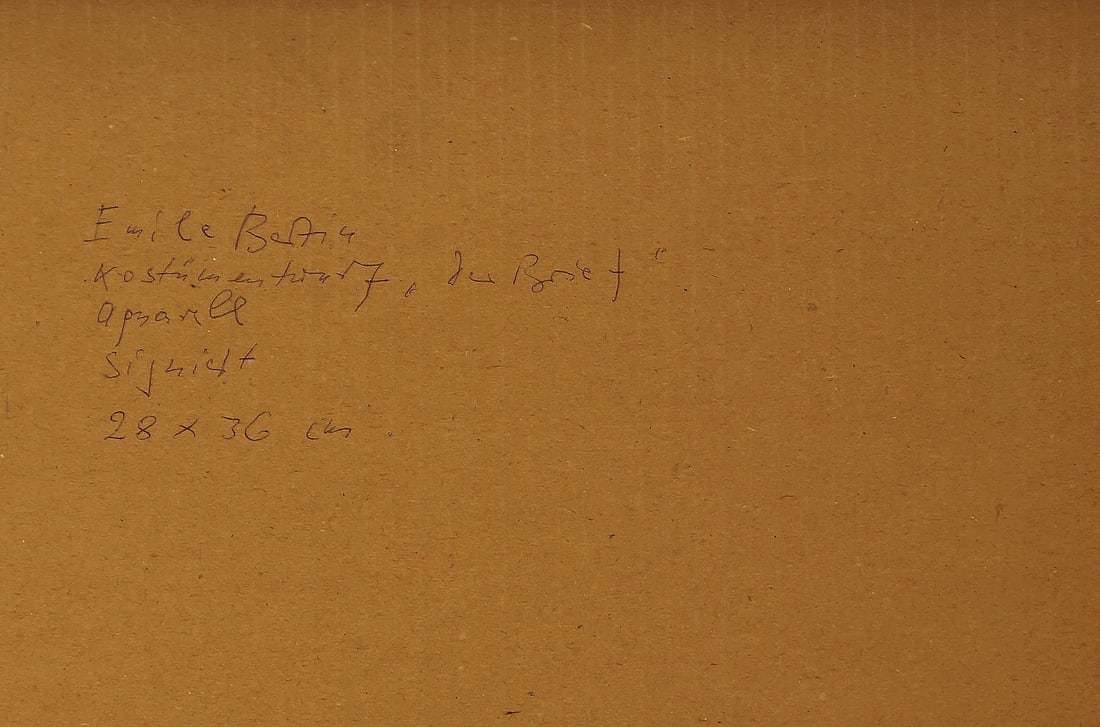 Emile Bertin
Kostümentwurf „der Brief“
Aquarell
signiert
28 x 36 cm